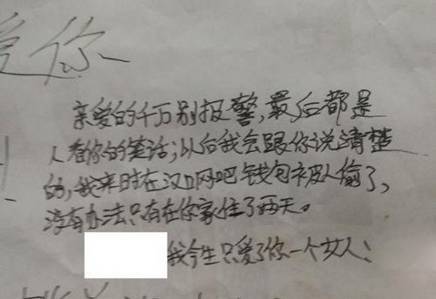 爱你
亲爱的千万别报警,最后都是
人看你的笑话;以后我会跟你说清楚
的,我来时在汉口网吧钱包被人偷了,
没有办法只有在你家住了两天。
我今生只爱了你一个女人!